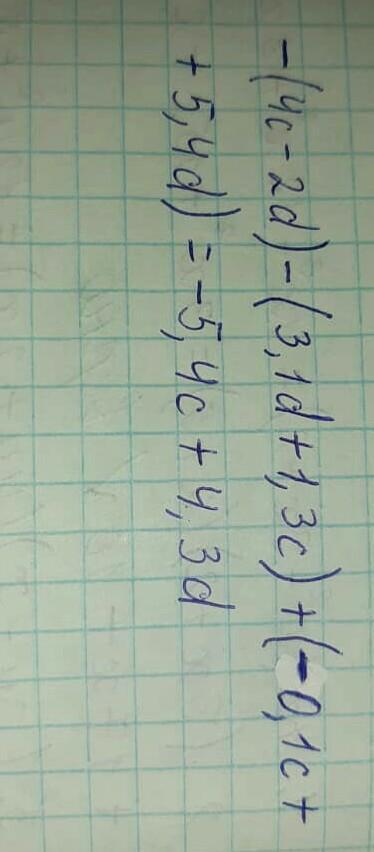 -(4c-2d)-(3,1d+1,3c)+(-0,1c+
+5,4d)=-5,4c+4,3d